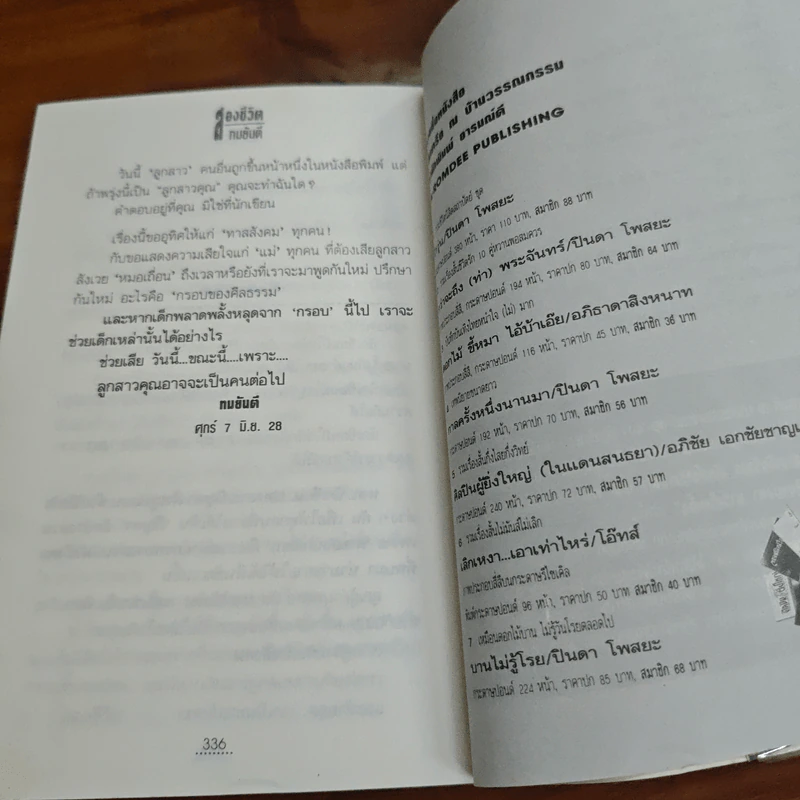 สองชีวิต
ทมยันตี
วันนี้ 'ลูกสาว' คนอื่นถูกขึ้นหน้าหนึ่งในหนังสือพิมพ์ แต่
ถ้าพรุ่งนี้เป็น 'ลูกสาวคุณ' คุณจะทำฉันใด ?
คำตอบอยู่ที่คุณ มิใช่ที่นักเขียน
เรื่องนี้ขออุทิศให้แก่ 'ทาสสังคม' ทุกคน !
กับขอแสดงความเสียใจแก่ 'แม่' ทุกคน ที่ต้องเสียลูกสาว
สังเวย 'หมอเถื่อน' ถึงเวลาหรือยังที่เราจะมาพูดกันใหม่ ปรึกษา
กันใหม่ อะไรคือ 'กรอบของศีลธรรม'
และหากเด็กพลาดพลั้งหลุดจาก 'กรอบ' นี้ไป เราจะ
ช่วยเด็กเหล่านั้นได้อย่างไร
ช่วยเสีย วันนี้...ขณะนี้....เพราะ....
ลูกสาวคุณอาจจะเป็นคนต่อไป
ทมยันตี
ศุกร์ 7 มิ.ย. 28
336
ณ บ้านวรรณกรรม
อารมณ์ดี
PUBLISHING
/ปินดา โพสยะ
380 หน้า, ราคา 110 บาท, สมาชิก 88 บาท
10 คู่หวานพอสมควร
(ทำ) พระจันทร์/ปินดา โพสยะ
กระดาษปอนด์ 194 หน้า, ราคาปก 80 บาท, สมาชิก 64 บาท
(ไม่) มาก
ขี้หมา ไอ้บ้าเอ๊ย/อภิธาดาสิงหนาท
กระดาษปอนด์ 116 หน้า, ราคาปก 45 บาท, สมาชิก 36 บาท
กาลครั้งหนึ่งนานมา/ปินดา โพสยะ
กระดาษปอนด์ 192 หน้า, ราคาปก 70 บาท, สมาชิก 56 บาท
5 รวมเรื่องสั้นกึ่งไสยกึ่งวิทย์
ศิลปินผู้ยิ่งใหญ่ (ในแดนสนธยา)/อภิชัย เอกชัยชาญ
กระดาษปอนด์ 240 หน้า, ราคาปก 72 บาท, สมาชิก 57 บาท
6 รวมเรื่องสั้นไม่มันส์ไม่เลิก
เลิกเหงา...เอาเท่าไหร่/โอ๊ทส์
ภาพประกอบสี่สีบนกระดาษรีไซเคิล
พิมพ์กระดาษปอนด์ 96 หน้า, ราคาปก 50 บาท สมาชิก 40 บาท
7 เหมือนดอกไม้บาน ไม่รู้วันโรยตลอดไป
บานไม่รู้โรย/ปินดา โพสยะ
กระดาษปอนด์ 224 หน้า, ราคาปก 85 บาท, สมาชิก 68 บาท